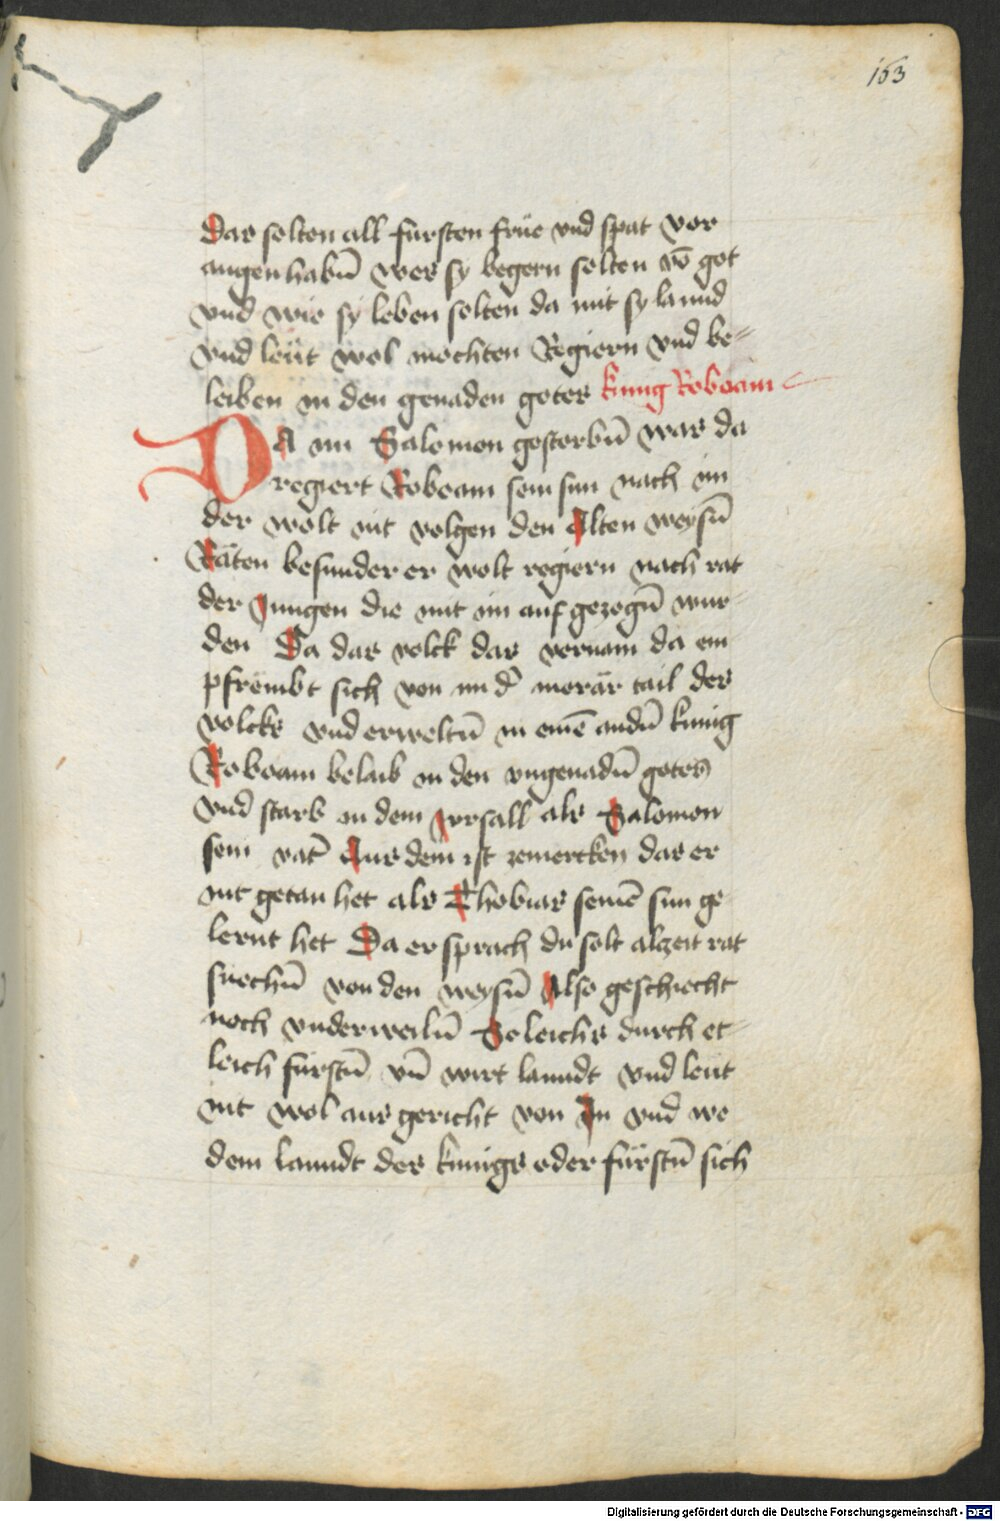 163
Das solten all fürsten früe vnd spat vor
augen habn̄ wes sy begern solten vō got
vnd wie sy leben solten da mit sy lannd
vnd leüt wol mochten Regiern vnd be-
leiben in den genaden gotes kunig Roboam
DA nu Salomon gestorbn̄ was da
regiert Roboam sein sun nach im
der wolt nit volgen den Alten weysn̄
Räten besunder er wolt regiern nach rat
der Jungen die mit im auf gezogn̄ wur-
den Da das volck das vernam da em
pfrömbt sich von im d' merär tail des
volcks vnd erweltn̄ in einē andn̄ kunig
Roboam belaib in den vngenadn̄ gotes
vnd starb in dem Irsall als Salomon
sein vat' Aus dem ist zemercken das er
nit getan het als Thobias seinē sun ge
lernt het Da er sprach du solt alzeit rat
suechn̄ von den weysn̄ Also geschiecht
noch vnderweiln̄ Soleichs durch et-
leich fürstn̄ vn̄ wirt lanndt vnd leüt
nit wol aus gericht von In vnd we
dem lanndt des kunigs oder fürstn̄ sich
Digitalisierung gefördert durch die Deutsche Forschungsgemeinschaft - DFG